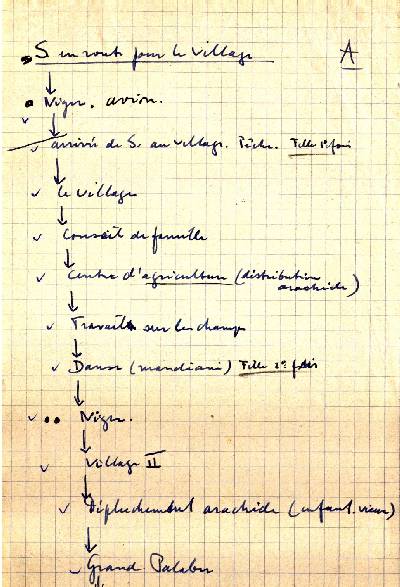 S. en route pour le Village
A
Niger. avion.
arrivée de S. au village. Pêche. Fille 1º fois
le village
Conseil de famille
Centre d'agriculture (distribution
arachide)
Travail sur les champs
Danse (mandiani) Fille 2º fois
Niger.
Village II
Épluchement arachide (enfant. vieux)
Grand Palabre